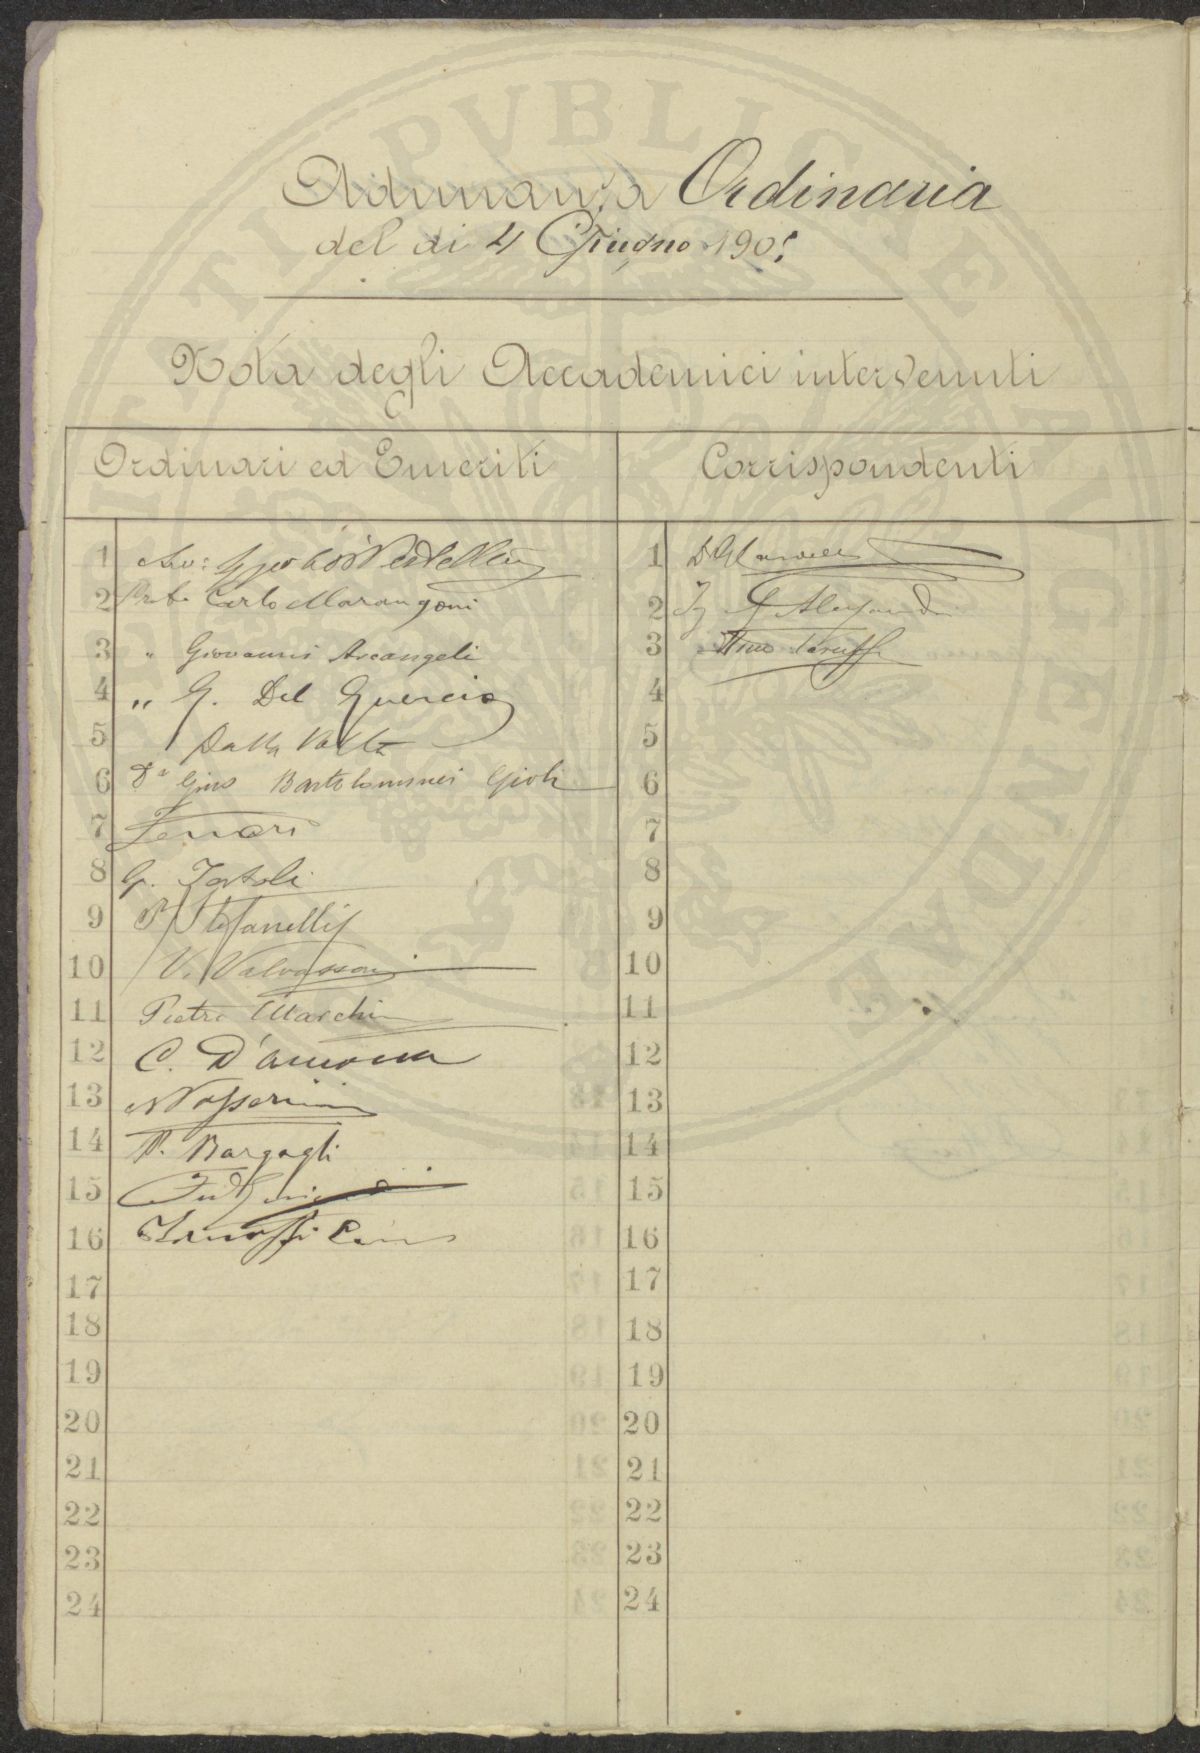 PROSPERITATI PVBLICAE AVGENDAE
Adunanza Ordinaria
del dì 4 Giugno 190
Nota degli Accademici intervenuti
Ordinari ed Emeriti
Corrispondenti
1
2 Carlo Marangoni
3 " Giovanni Arcangeli
4 " G. Del Guercio
5 Dalla Volta
6 Dr Gino Bartolommei Gioli
7 Ferrari
8 G. Tortoli
9 P. Stefanelli
10 V. Valvassori
11 Pietro Marchi
12 C. D'Ancona
13 N Passerini
14 P. Bargagli
15
16
17
18
19
20
21
22
23
24
1
2 G Alessandri
3 Tito Taruffi
4
5
6
7
8
9
10
11
12
13
14
15
16
17
18
19
20
21
22
23
24